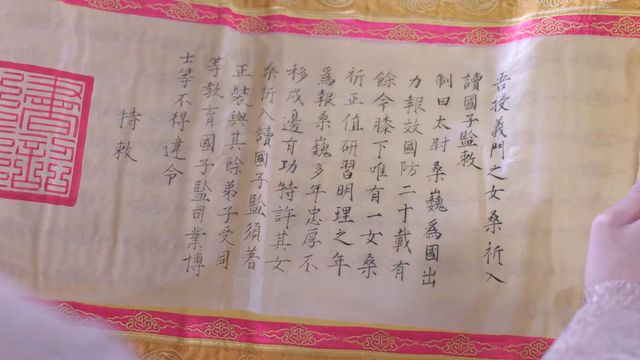 吾授義門之女桑祈入
讀國子監敕
制曰太尉桑巍為國出
力報效國防二十載有
餘今膝下唯有一女桑
祈正值研習明理之年
為報桑巍多年忠厚不
移戍邊有功特許其女
桑祈入讀國子監須著
正裝與其餘弟子受同
等教育國子監司業博
士等不得違令
特敕